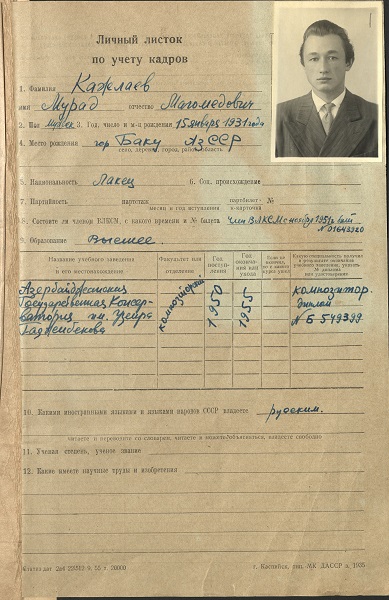 Личный листок
по учету кадров
1. Фамилия Кажлаев
имя Мурад отчество Магомедович
2. Пол мужск 3. Год, число и м-ц рождения 15 января 1931 года
4. Место рождения гор. Баку АзССР
село, деревня, город, район, область
5. Национальность Лакец 6. Соц. происхождение
7. Партийность партстаж партбилет №
месяц и год вступления к-карточка
8. Состоите ли членом ВЛКСМ, с какого времени и № билета член ВЛКСМ с ноября 1951г. билет
№ 01643320
9. Образование Высшее
Название учебного заведения и его местонахождение
Факультет или отделение
Год поступления
Год окончания или ухода
Азербайджанская Государственная Консерватория им. Узеира Гаджибекова
композиторский
1950
1955
композитор. диплом № Б 549399
10. Какими иностранными языками и языками народов СССР владеете русским.
читаете и переводите со словарем, читаете и можете объясняться, владеете свободно
11. Ученая степень, ученое звание
12. Какие имеете научные труды и изобретения
г. Каспийск, тип. МК ДАССР з. 1935